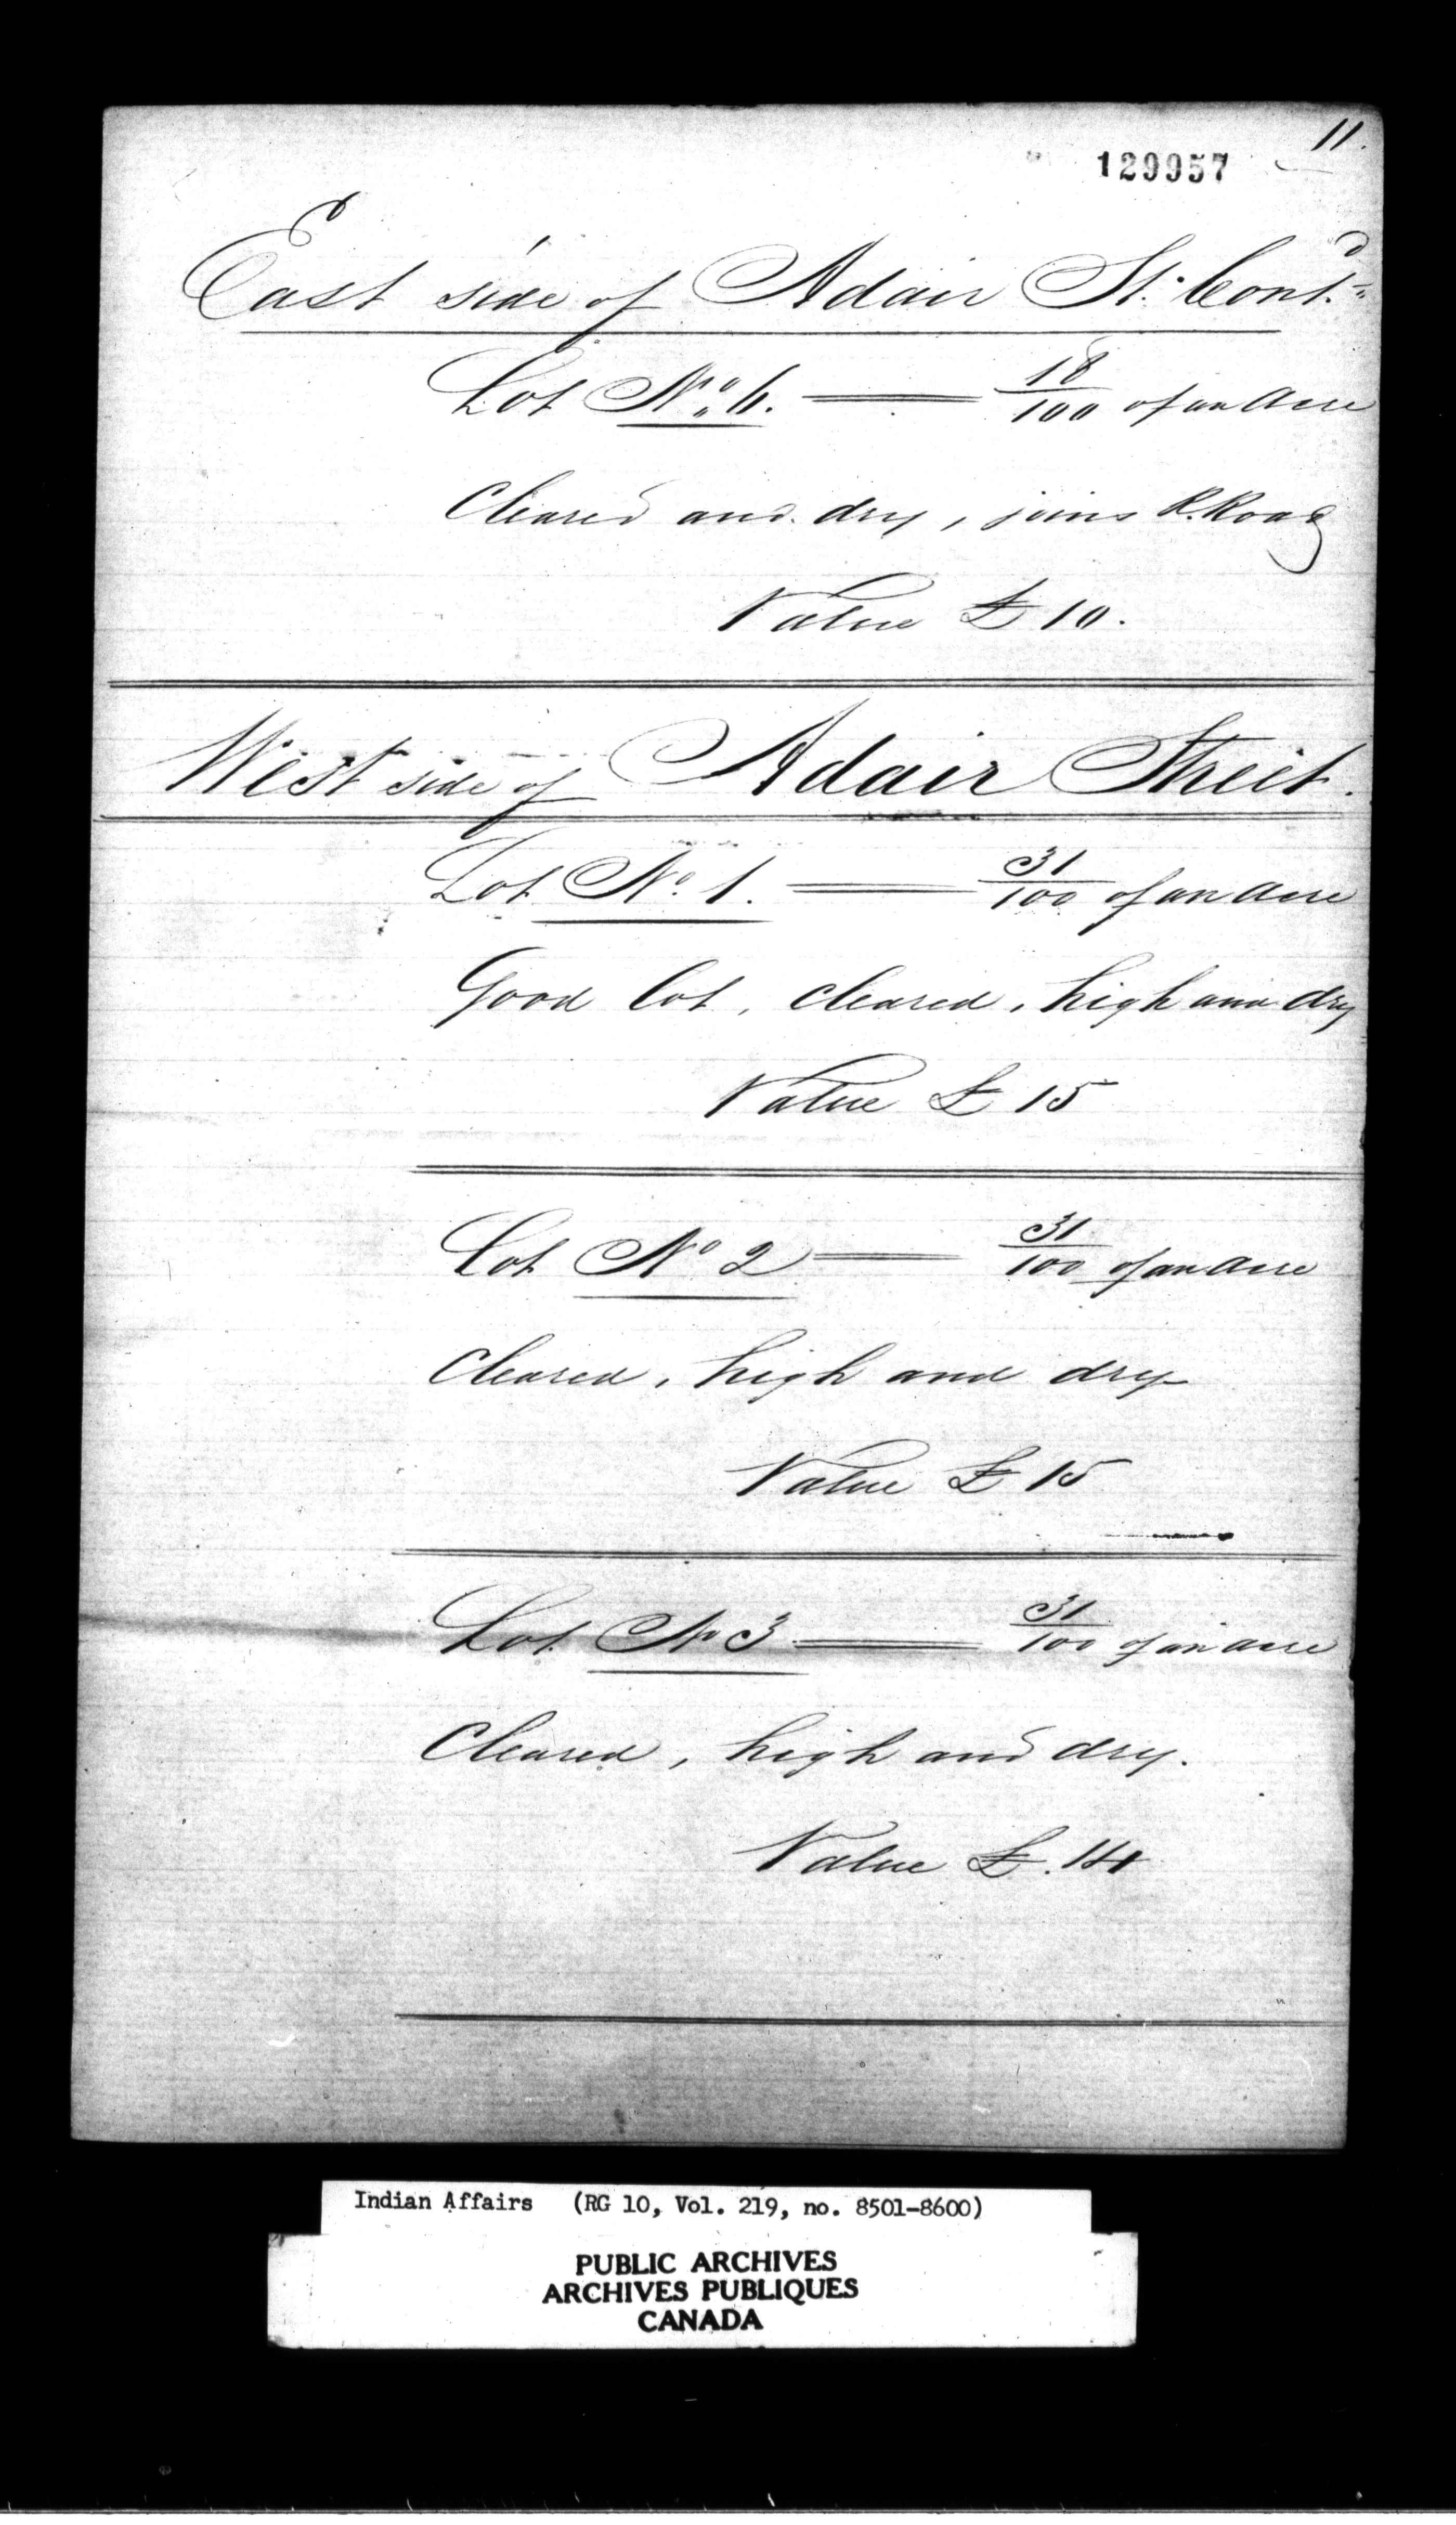 11.
129957
East side of Adair St. Cont.d
Lot No. 6. 18/100 of an Acre
Cleared and dry, joins R. Road
Value £ 10.
West side of Adair Street.
Lot No. 1. 31/100 of an Acre
Good lot, cleared, high and dry
Value £ 15
Lot No 2 31/100 of an Acre
Cleared, high and dry
Value £ 15
Lot No 3 31/100 of an acre
Cleared, high and dry.
Value £. 14
Indian Affairs (RG 10, Vol. 219, no. 8501-8600)
PUBLIC ARCHIVES
ARCHIVES PUBLIQUES
CANADA